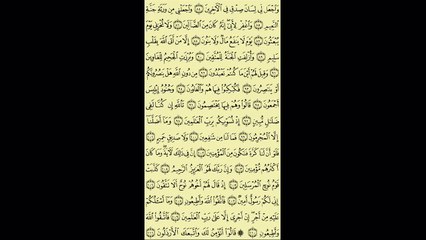 وَٱجْعَل لِّى لِسَانَ صِدْقٍ فِى ٱلْـَٔاخِرِينَ ٨٤ وَٱجْعَلْنِى مِن وَرَثَةِ جَنَّةِ
ٱلنَّعِيمِ ٨٥ وَٱغْفِرْ لِأَبِىٓ إِنَّهُۥ كَانَ مِنَ ٱلضَّآلِّينَ ٨٦ وَلَا تُخْزِنِى يَوْمَ
يُبْعَثُونَ ٨٧ يَوْمَ لَا يَنفَعُ مَالٌ وَلَا بَنُونَ ٨٨ إِلَّا مَنْ أَتَى ٱللَّهَ بِقَلْبٍ
سَلِيمٍ ٨٩ وَأُزْلِفَتِ ٱلْجَنَّةُ لِلْمُتَّقِينَ ٩٠ وَبُرِّزَتِ ٱلْجَحِيمُ لِلْغَاوِينَ
٩١ وَقِيلَ لَهُمْ أَيْنَ مَا كُنتُمْ تَعْبُدُونَ ٩٢ مِن دُونِ ٱللَّهِ هَلْ يَنصُرُونَكُمْ
أَوْ يَنتَصِرُونَ ٩٣ فَكُبْكِبُوا۟ فِيهَا هُمْ وَٱلْغَاوُۥنَ ٩٤ وَجُنُودُ إِبْلِيسَ
أَجْمَعُونَ ٩٥ قَالُوا۟ وَهُمْ فِيهَا يَخْتَصِمُونَ ٩٦ تَٱللَّهِ إِن كُنَّا لَفِى
ضَلَـٰلٍ مُّبِينٍ ٩٧ إِذْ نُسَوِّيكُم بِرَبِّ ٱلْعَـٰلَمِينَ ٩٨ وَمَآ أَضَلَّنَآ
إِلَّا ٱلْمُجْرِمُونَ ٩٩ فَمَا لَنَا مِن شَـٰفِعِينَ ١٠٠ وَلَا صَدِيقٍ حَمِيمٍ ١٠١
فَلَوْ أَنَّ لَنَا كَرَّةً فَنَكُونَ مِنَ ٱلْمُؤْمِنِينَ ١٠٢ إِنَّ فِى ذَٰلِكَ لَـَٔايَةً وَمَا كَانَ
أَكْثَرُهُم مُّؤْمِنِينَ ١٠٣ وَإِنَّ رَبَّكَ لَهُوَ ٱلْعَزِيزُ ٱلرَّحِيمُ ١٠٤ كَذَّبَتْ
قَوْمُ نُوحٍ ٱلْمُرْسَلِينَ ١٠٥ إِذْ قَالَ لَهُمْ أَخُوهُمْ نُوحٌ أَلَا تَتَّقُونَ ١٠٦
إِنِّى لَكُمْ رَسُولٌ أَمِينٌ ١٠٧ فَٱتَّقُوا۟ ٱللَّهَ وَأَطِيعُونِ ١٠٨ وَمَآ أَسْـَٔلُكُمْ
عَلَيْهِ مِنْ أَجْرٍ إِنْ أَجْرِىَ إِلَّا عَلَىٰ رَبِّ ٱلْعَـٰلَمِينَ ١٠٩ فَٱتَّقُوا۟ ٱللَّهَ
وَأَطِيعُونِ ١١٠ ۞ قَالُوٓا۟ أَنُؤْمِنُ لَكَ وَٱتَّبَعَكَ ٱلْأَرْذَلُونَ ١١١